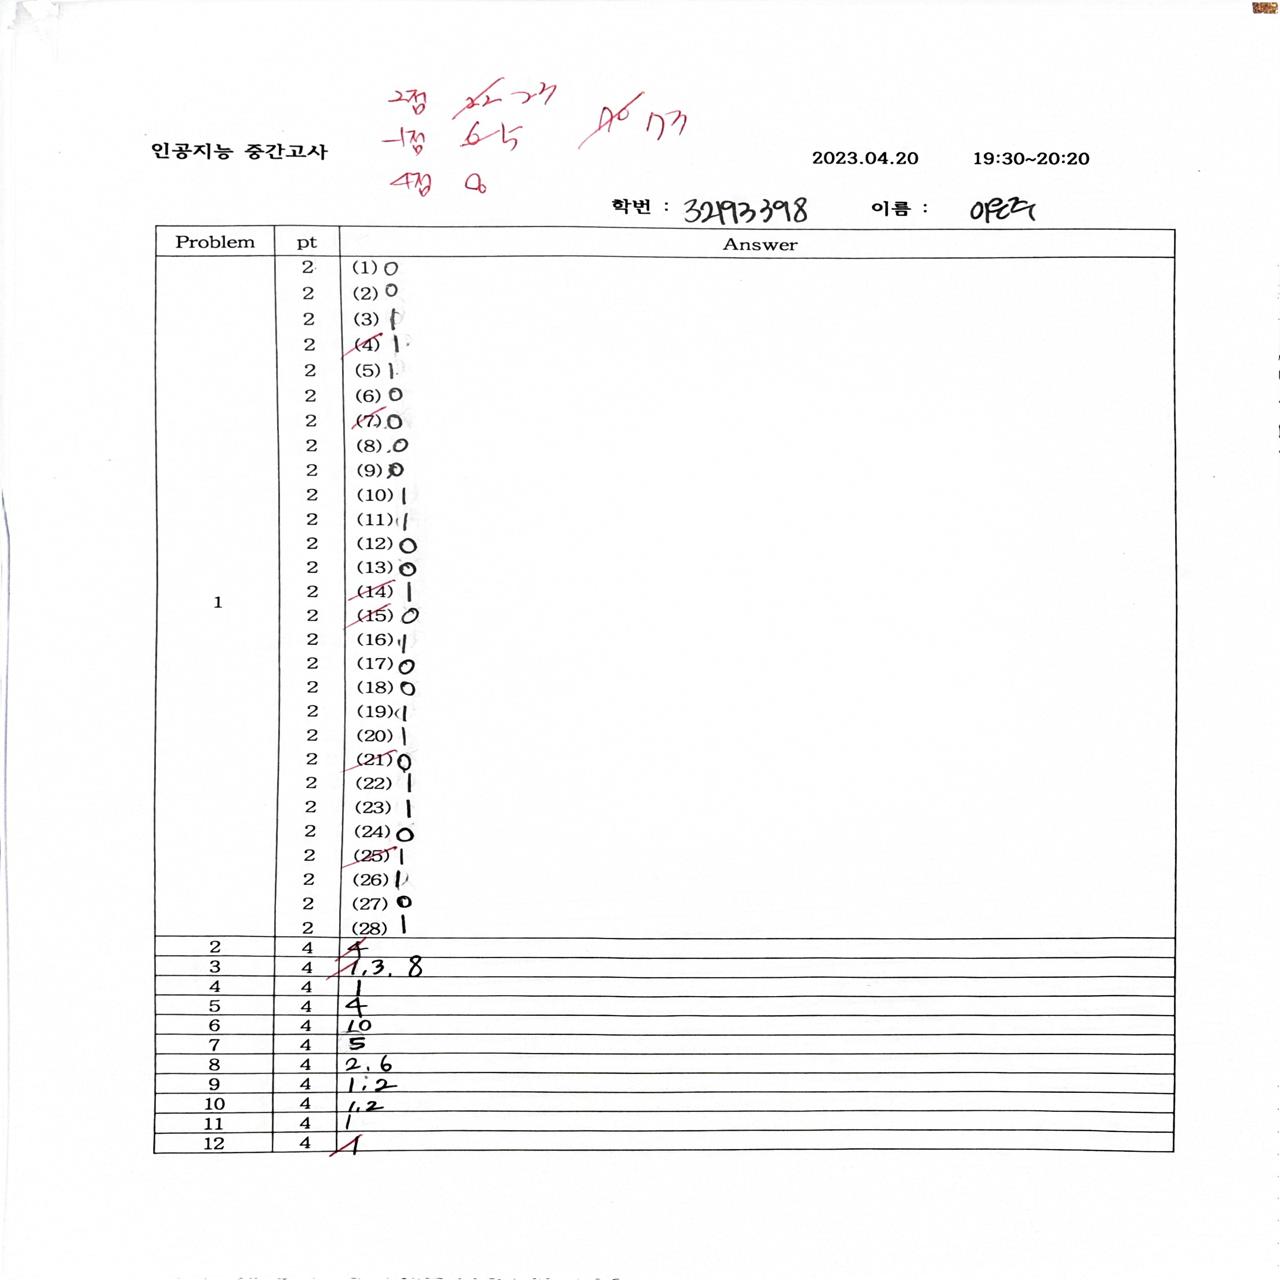 2점 22 23
-1점 6 5 70 73
인공지능 중간고사 2023.04.20 19:30~20:20
4점 8
학번 : 32193398 이름 :
Problem pt Answer
2 (1) 0
2 (2) 0
2 (3) 1
2 (4) 1
2 (5) 1
2 (6) 0
2 (7) 0
2 (8) 0
2 (9) 0
2 (10) 1
2 (11) 1
2 (12) 0
2 (13) 0
2 (14) 1
1
2 (15) 0
2 (16) 1
2 (17) 0
2 (18) 0
2 (19) 1
2 (20) 1
2 (21) 0
2 (22) 1
2 (23) 1
2 (24) 0
2 (25) 1
2 (26) 1
2 (27) 0
2 (28) 1
2 4 4
3 4 1, 3, 8
4 4 1
5 4 4
6 4 10
7 4 5
8 4 2, 6
9 4 1, 2
10 4 1, 2
11 4 1
12 4 1